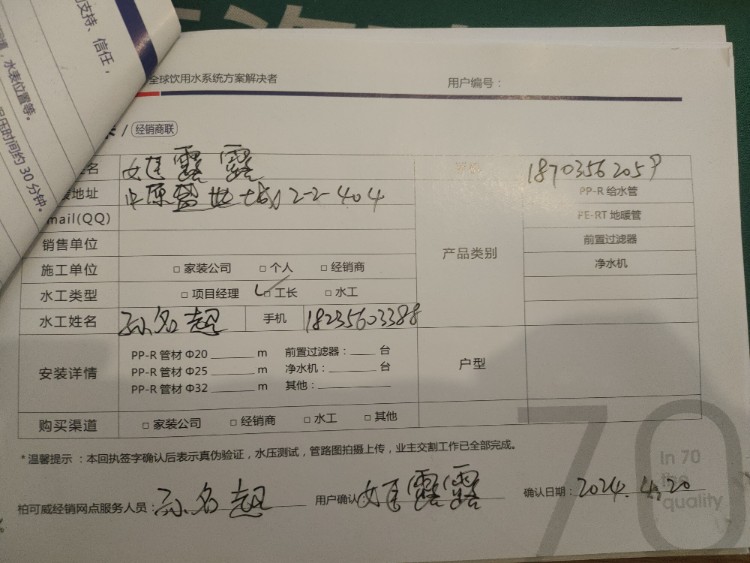 的支持、信任，
水表位置等。
保压时间约30分钟。
全球饮用水系统方案解决者
用户编号：
/ 经销商联
姓名 姬露露 18703562059
地址 中原盛地一城 2-2-404
PP-R 给水管
mail(QQ)
PE-RT 地暖管
销售单位
产品类别
前置过滤器
施工单位 □ 家装公司 □ 个人 □ 经销商
净水机
水工类型 □ 项目经理 □ 工长 □ 水工
水工姓名 孙名超 手机 18235603388
安装详情
PP-R 管材 Φ20 m 前置过滤器： 台
PP-R 管材 Φ25 m 净水机： 台
PP-R 管材 Φ32 m 其他：
户型
购买渠道 □ 家装公司 □ 经销商 □ 水工 □ 其他
*温馨提示：本回执签字确认后表示真伪验证，水压测试，管路图拍摄上传，业主交割工作已全部完成。
70
In 70
quality
柏可威经销网点服务人员：孙名超 用户确认：姬露露 确认日期：2024.4.20